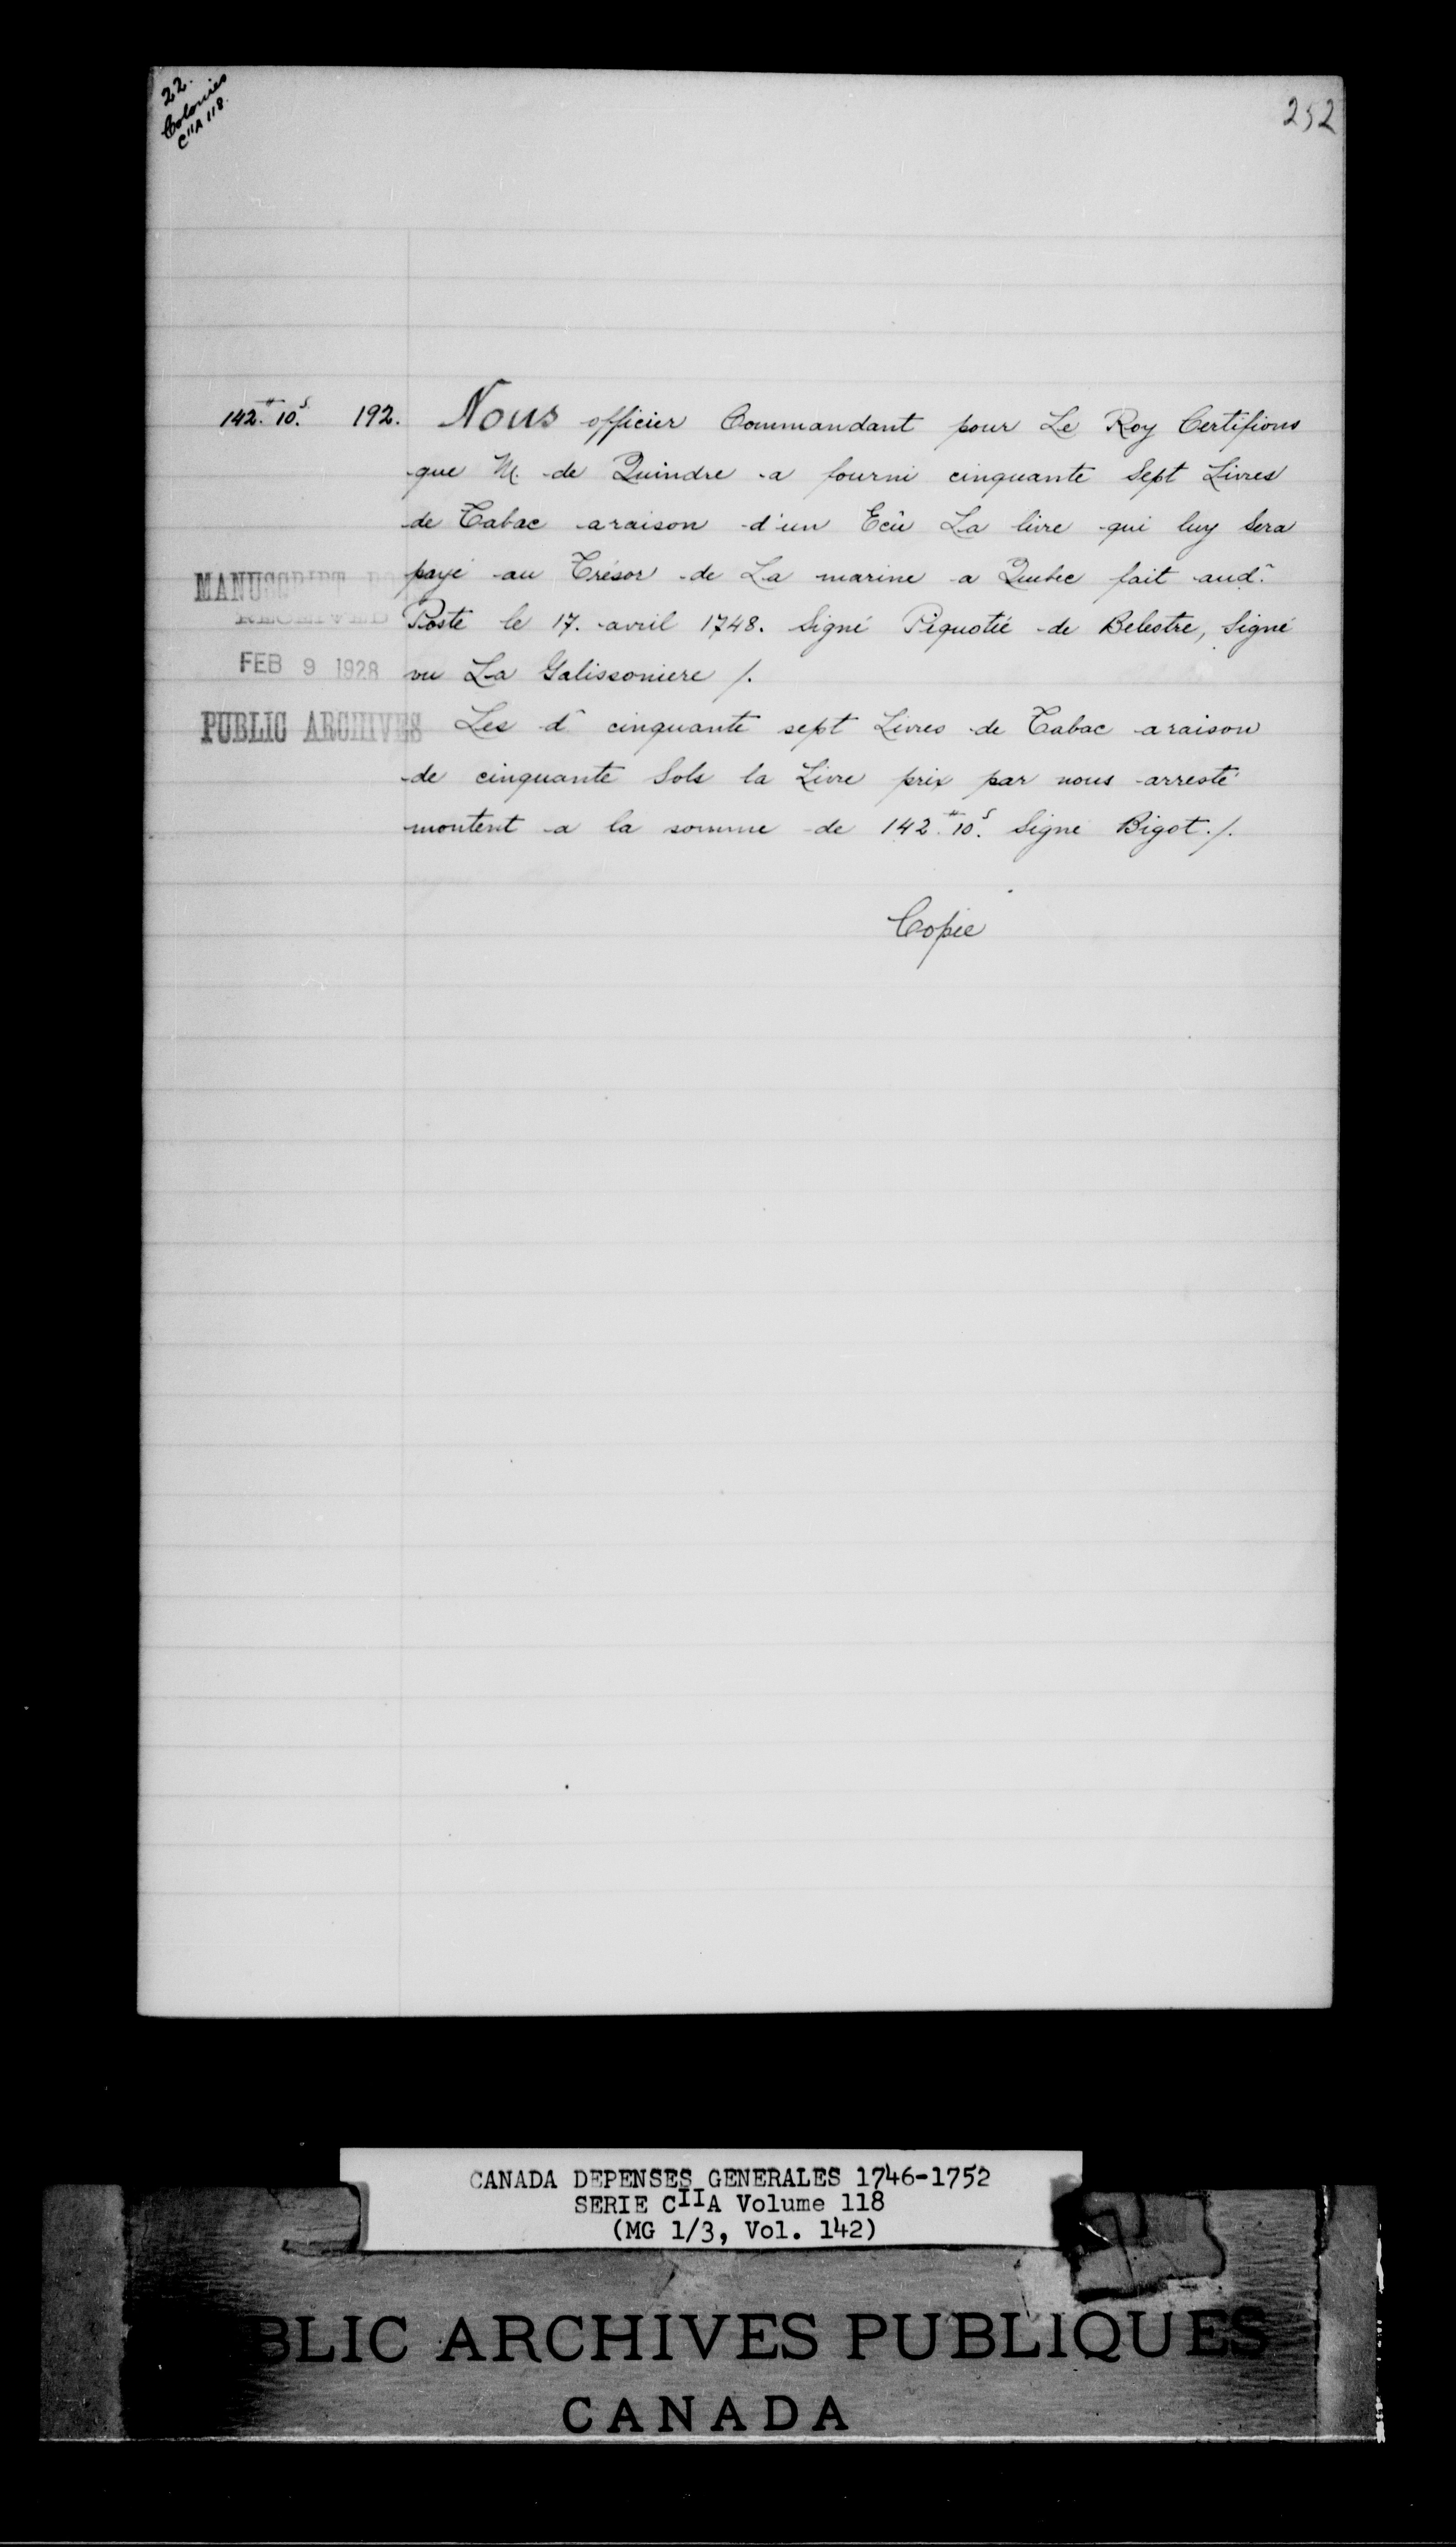 22.
Colonies
C11A 118.
252
142.# 10.s 192. Nous officier Commandant pour Le Roy Certifions
que M. de Quindre a fourni cinquante Sept Livres
de Tabac a raison d'un Ecû La livre qui luy Sera
payé au Trésor de La marine a Quebec fait aud.t
Poste le 17. avril 1748. Signé Piquotée de Belestre, Signé
vu La Galissoniere /.
Les d.t cinquante sept Livres de Tabac a raison
de cinquante Sols la Livre prix par nous arresté
montent a la somme de 142.# 10.s Signé Bigot ./.
Copie
MANUSCRIPT
RECEIVED
FEB 9 1928
PUBLIC ARCHIVES
CANADA DEPENSES GENERALES 1746-1752
SERIE CIIA Volume 118
(MG 1/3, Vol. 142)
BLIC ARCHIVES PUBLIQUES
CANADA